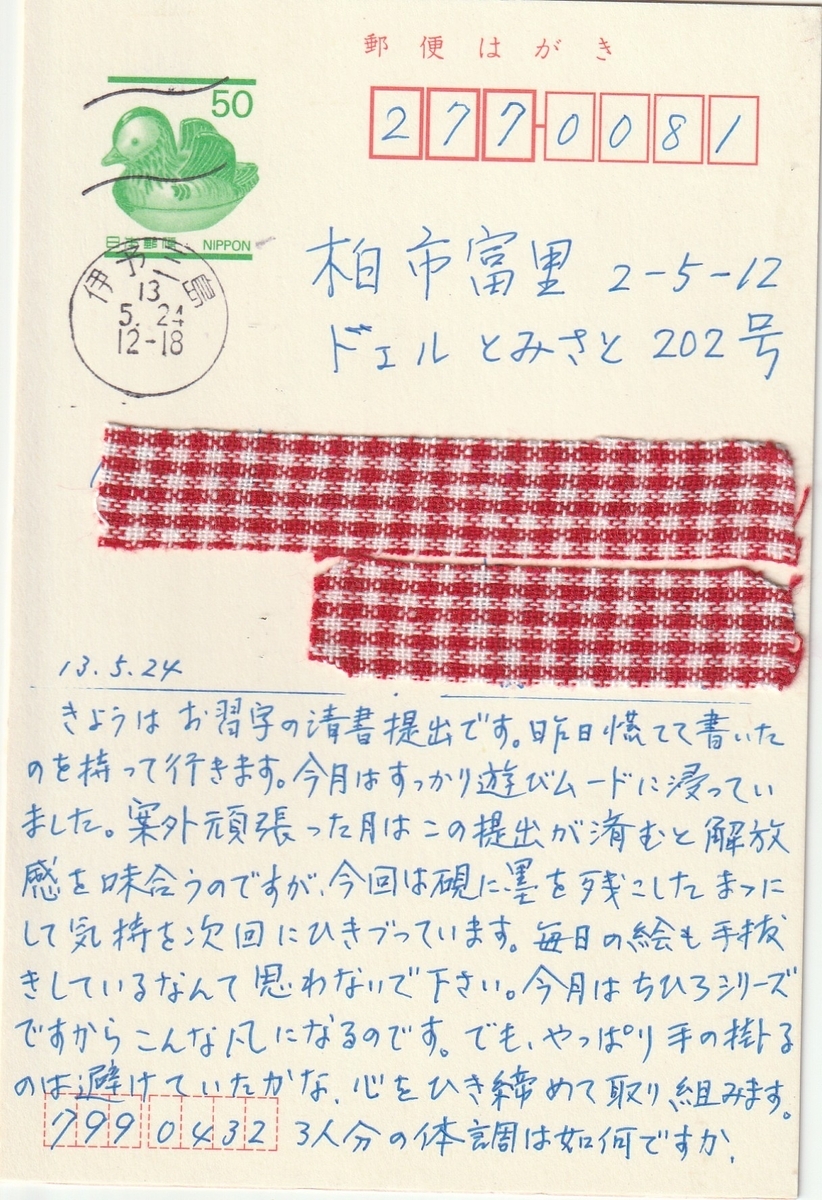 郵便はがき
50
日本郵便 NIPPON
277-0081
伊予三島
13
5.24
12-18
柏市富里 2-5-12
ドエル とみさと 202号
13.5.24
きょうは お習字の清書提出です。昨日慌てて書いた
のを持って行きます。今月はすっかり遊びムードに浸ってい
ました。案外頑張った月はこの提出が済むと解放
感を味合うのですが、今回は硯に墨を残こしたまつに
して気持を次回にひきづっています。毎日の絵も手抜
きしているなんて思わないで下さい。今月はちひろシリーズ
ですからこんな風になるのです。でも、やっぱり手の掛る
のは避けていたかな、心をひき締めて取り組みます。
799 0432 3人分の体調は如何ですか、